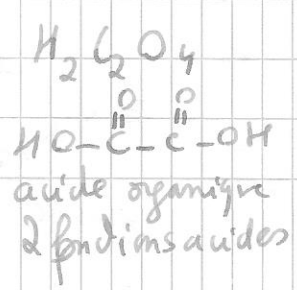 H2C2O4
O O
HO-C-C-OH
acide organique
2 fonctions acides